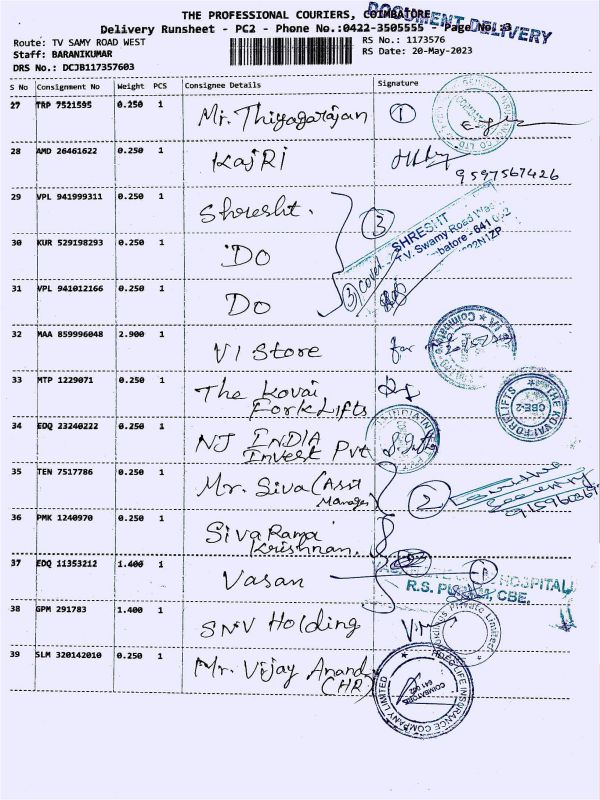 THE PROFESSIONAL COURIERS, COIMBATORE
DOCUMENT DELIVERY
Delivery Runsheet - PC2 - Phone No.:0422-3505555 - Page No.:3
Route: TV SAMY ROAD WEST
RS No.: 1173576
Staff: BARANIKUMAR
RS Date: 20-May-2023
DRS No.: DCJB117357603
S No Consignment No Weight PCS Consignee Details Signature
27 TRP 7521595 0.250 1 Mr. Thiyagarajan 1
28 AMD 26461622 0.250 1 KajRi
9597567426
29 VPL 941999311 0.250 1 Shresht. 3
SHRESHT
T.V. Swamy Road West
30 KUR 529198293 0.250 1 Do
31 VPL 941012166 0.250 1 Do 3 cover
32 MAA 859996048 2.900 1 VI Store for
33 MTP 1229071 0.250 1 The Kovai
Forklifts
THE KOVAI FORKLIFTS
CBE-2
34 EDQ 23240222 0.250 1 NJ INDIA
Invest Pvt
35 TEN 7517786 0.250 1 Mr. Siva (Asst
Manager) 2
36 PMK 1240970 0.250 1 Siva Rama
Krishnan.
37 EDQ 11353212 1.400 1 Vasan
HOSPITAL
CBE.
38 GPM 291783 1.400 1 SNV Holding
Private Limited
39 SLM 320142010 0.250 1 Mr. Vijay Anand
(HR)
HDFC LIFE INSURANCE COMPANY LIMITED
COIMBATORE
641 002